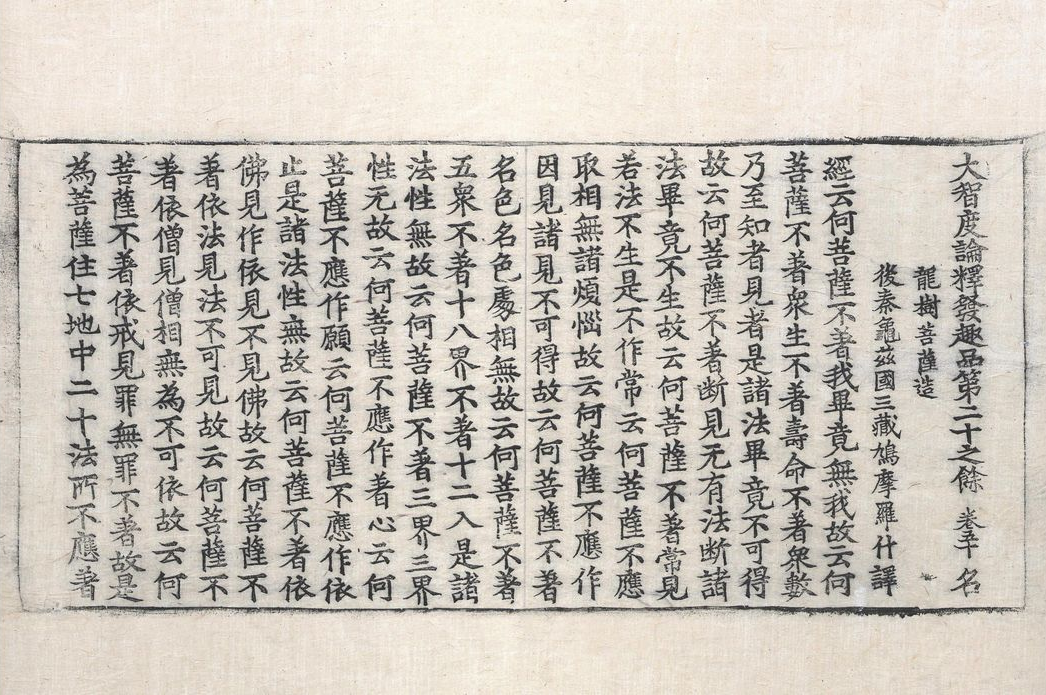 大智度論釋發趣品第二十之餘 卷五十 名
龍樹菩薩造
後秦龜茲國三藏鳩摩羅什譯
經云何菩薩不著我畢竟無我故云何
菩薩不著衆生不著壽命不著衆數
乃至知者見者是諸法畢竟不可得
故云何菩薩不著断見无有法断諸
法畢竟不生故云何菩薩不著常見
若法不生是不作常云何菩薩不應
取相無諸煩惱故云何菩薩不應作
因見諸見不可得故云何菩薩不著
名色名色處相無故云何菩薩不著
五衆不著十八界不著十二入是諸
法性無故云何菩薩不著三界三界
性无故云何菩薩不應作著心云何
菩薩不應作願云何菩薩不應作依
止是諸法性無故云何菩薩不著依
佛見作依見不見佛故云何菩薩不
著依法見法不可見故云何菩薩不
著依僧見僧相無為不可依故云何
菩薩不著依戒見罪無罪不著故是
為菩薩住七地中二十法所不應著